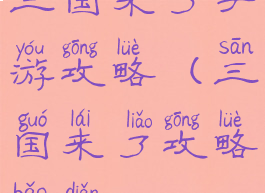 三国来了手
yóu gōng lüè sān
游攻略(三
guó lái liǎo gōng lüè
国来了攻略
bǎo diǎn